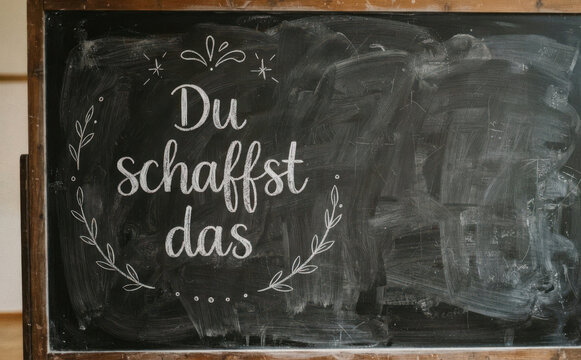 Du
schaffst
das